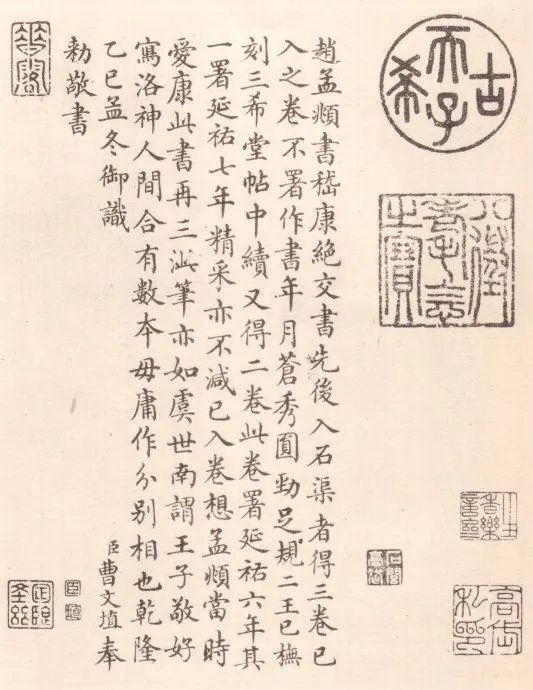 古希天子
八徵耄念之寶
趙孟頫書嵇康絕交書先後入石渠者得三卷已
入之卷不署作書年月蒼秀圓勁足規二王已橅
刻三希堂帖中續又得二卷此卷署延祐六年其
一署延祐七年精采亦不減已入卷想孟頫當時
愛康此書再三泚筆亦如虞世南謂王子敬好
寫洛神人間合有數本毋庸作分別相也乾隆
乙巳孟冬御識 臣曹文埴奉
勑敬書